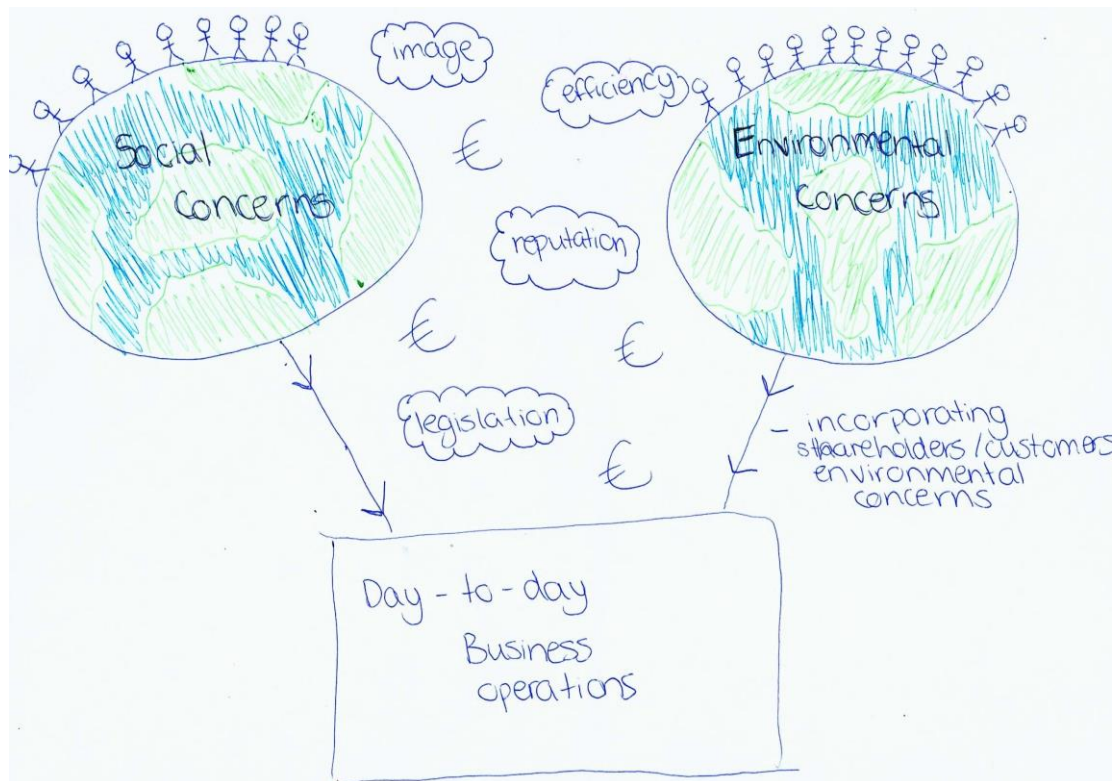 image
efficiency
Social
Concerns
Environmental
Concerns
€
reputation
€
€
legislation
- incorporating
shareholders/customers
environmental
concerns
€
Day-to-day
Business
operations